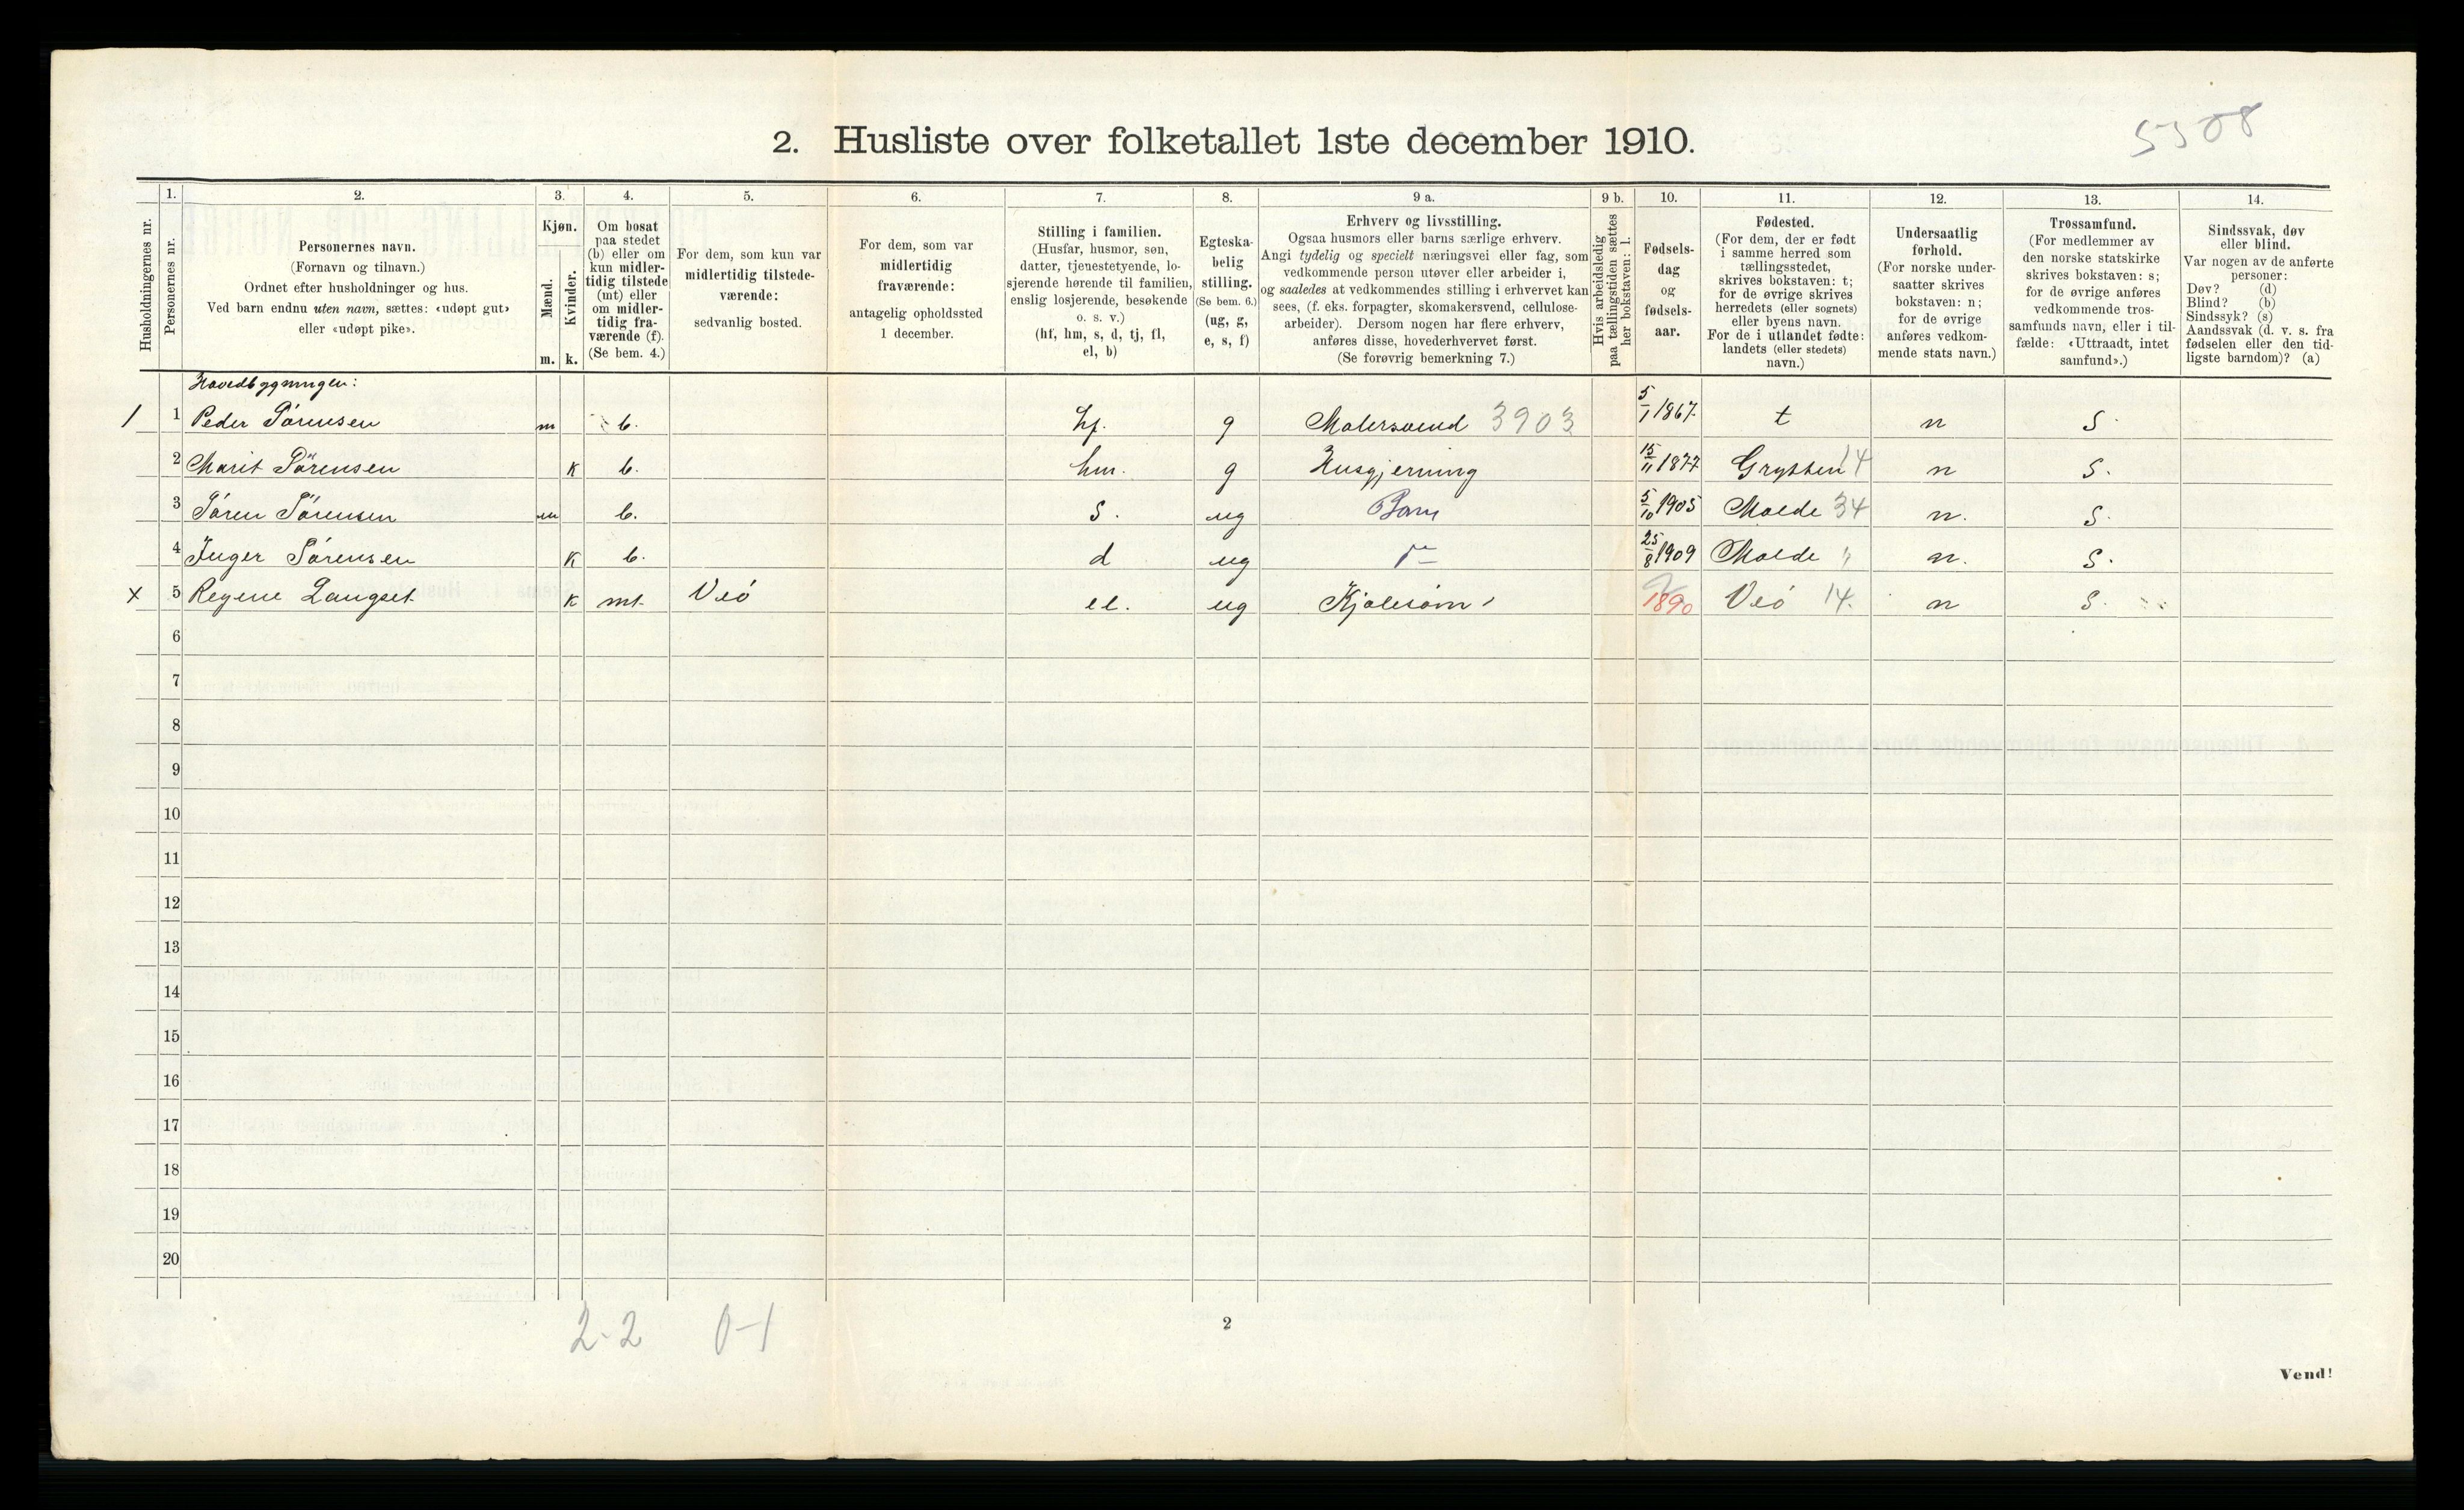 2. Husliste over folketallet 1ste december 1910.
5508
Husholdningernes nr.
1.
Personernes nr.
2.
Personernes navn.
(Fornavn og tilnavn.)
Ordnet efter husholdninger og hus.
Ved barn endnu uten navn, sættes: «udøpt gut»
eller «udøpt pike».
3.
Kjøn.
Mænd.
Kvinder.
m. k.
4.
Om bosat
paa stedet
(b) eller om
kun midler-
tidig tilstede
(mt) eller
om midler-
tidig fra-
værende (f).
(Se bem. 4.)
5.
For dem, som kun var
midlertidig tilstede-
værende:
sedvanlig bosted.
6.
For dem, som var
midlertidig
fraværende:
antagelig opholdssted
1 december.
7.
Stilling i familien.
(Husfar, husmor, søn,
datter, tjenestetyende, lo-
sjerende hørende til familien,
enslig losjerende, besøkende
o. s. v.)
(hf, hm, s, d, tj, fl,
el, b)
8.
Egteska-
belig
stilling.
(Se bem. 6.)
(ug, g,
e, s, f)
9 a.
Erhverv og livsstilling.
Ogsaa husmors eller barns særlige erhverv.
Angi tydelig og specielt næringsvei eller fag, som
vedkommende person utøver eller arbeider i,
og saaledes at vedkommendes stilling i erhvervet kan
sees, (f. eks. forpagter, skomakersvend, cellulose-
arbeider). Dersom nogen har flere erhverv,
anføres disse, hovederhvervet først.
(Se forøvrig bemerkning 7.)
9 b.
Hvis arbeidsledig
paa tællingstiden sættes
her bokstaven: l.
10.
Fødsels-
dag
og
fødsels-
aar.
11.
Fødested.
(For dem, der er født
i samme herred som
tællingsstedet,
skrives bokstaven: t;
for de øvrige skrives
herredets (eller sognets)
eller byens navn.
For de i utlandet fødte:
landets (eller stedets)
navn.)
12.
Undersaatlig
forhold.
(For norske under-
saatter skrives
bokstaven: n;
for de øvrige
anføres vedkom-
mende stats navn.)
13.
Trossamfund.
(For medlemmer av
den norske statskirke
skrives bokstaven: s;
for de øvrige anføres
vedkommende tros-
samfunds navn, eller i til-
fælde: «Uttraadt, intet
samfund».)
14.
Sindssvak, døv
eller blind.
Var nogen av de anførte
personer:
Døv? (d)
Blind? (b)
Sindssyk? (s)
Aandssvak (d. v. s. fra
fødselen eller den tid-
ligste barndom)? (a)
Hovedbygningen:
1 1 Peder Sørensen m b. hf. g Malersvend 3903 5/1 1867 t n S.
2 Marit Sørensen k b. hm. g Husgjerning 15/11 1877 Grytten 14 n S.
3 Søren Sørensen m b. S. ug Barn 5/10 1905 Molde 34 n. S.
4 Inger Sørensen k b. d ug 25/8 1909 Molde " n. S.
x 5 Regene Langset k mt Veö el. ug Kjolesøm 1890 Veö 14. n S.
6
7
8
9
10
11
12
13
14
15
16
17
18
19
20
2-2 0-1
2
Vend!